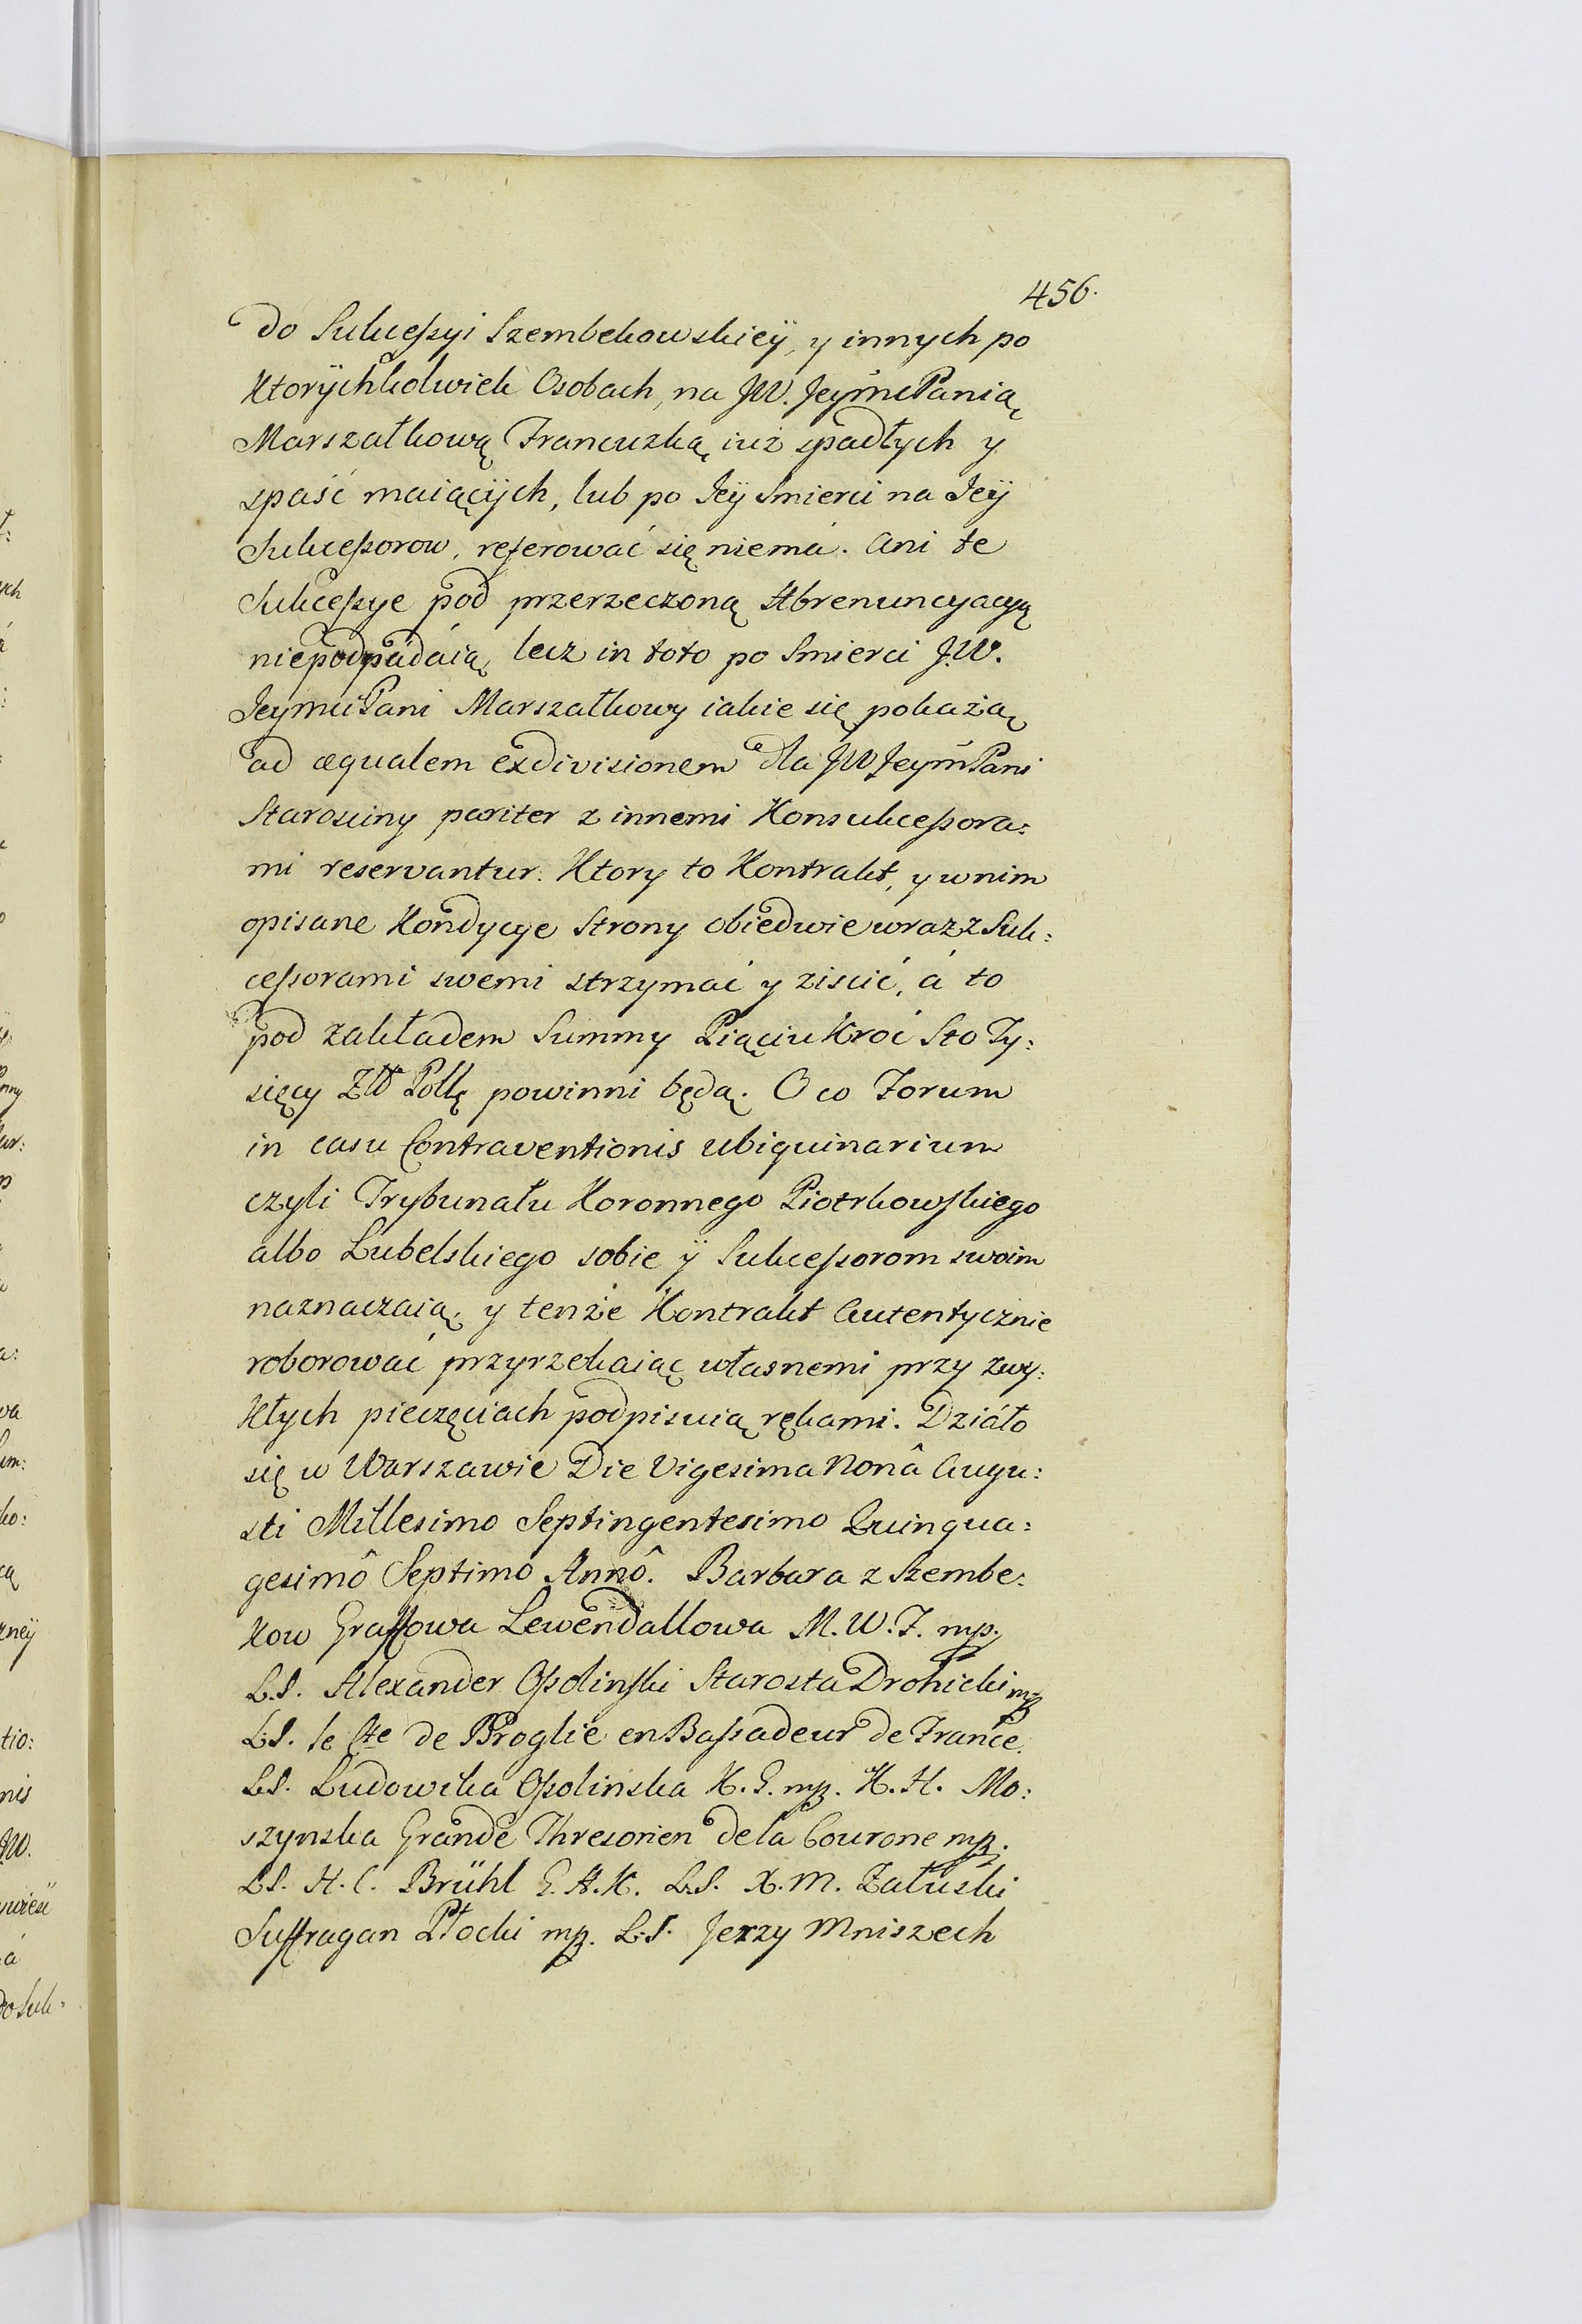 456.
do Sukceßyi Szembekowskieÿ, y innych po
Ktorÿchkolwiek Osobach, na JW. JeymćPanią
Marszałkową Francuzką iuż spadłych y
spaść maiącÿch, lub po Jeÿ Smierci na Jeÿ
Sukceßorow, referować się niemá. Ani te
Sukceßye pod przerzeczoną Abrenuncyacyą
niepodpadáią, lecz in toto po Smierci J.W.
JeymćiPani Marszałkowy iakie się pokażą
ad æqualem exdivisionem dla JW JeymPani
Starosciny pariter z innemi Konsukceßora:
mi reservantur. Ktory to Kontrakt, y wnim
opisane Kondycye Strony obiedwie wraz z Suk:
ceßorami swemi strzymać y ziscić, á to
pod zakładem Summy Piąciu Kroć Sto Ty:
sięcy Złł Pollę powinni będą. O co Forum
in casu Contraventionis ubiquinarium
czyli Trybunału Koronnego Piotrkowskiego
albo Lubelskiego sobie ÿ Sukceßorom swoim
naznaczaią, y tenże Kontrakt Autentycznie
roborować przyrzekaiąc własnemi przy zwy:
Kłych pieczęciach podpisuią rękami. Dziáło
się w Warszawie Die Vigesima Nonâ Augu:
sti Millesimo Septingentesimo Quinqua:
gesimô Septimo Annô. Barbara z Szembe:
Kow Graffowa Lewendallowa M. W. F. mp.
L.S. Alexander Oßolinski Starosta Drohicki mp
L:S. le Cte de Broglie en Baßadeur de France.
L:S. Ludowika Oßolinska K. G. mp. K. H. Mo:
szynska Grande Thresorien de la Courone mp.
L:S. H. C. Brühl G. A. K. L:S. X. M. Załuski
Suffragan Płocki mp. L:S. Jerzy Mniszech